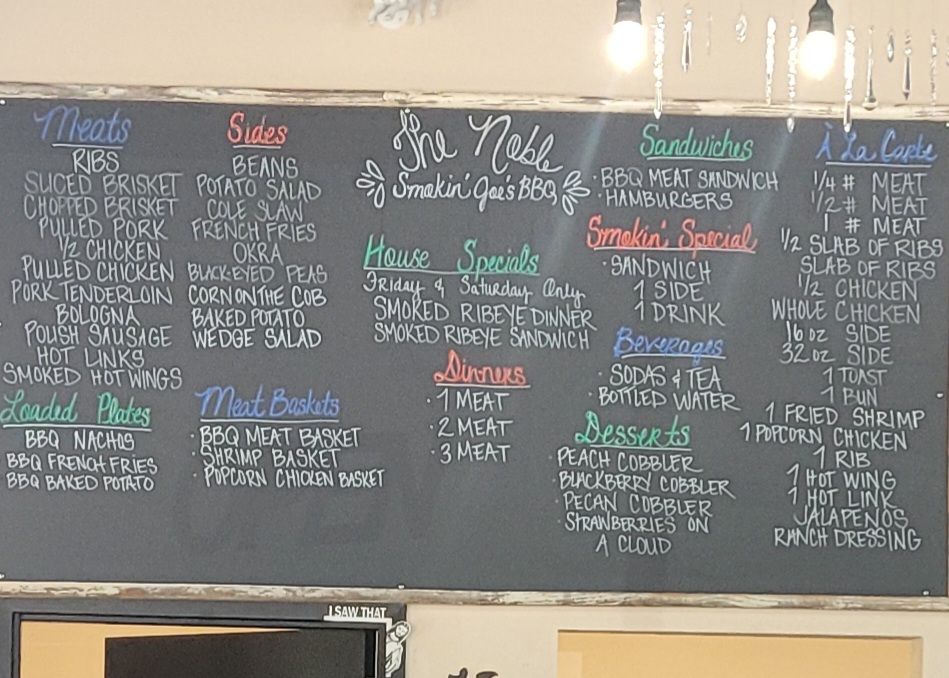 Meats
RIBS
SLICED BRISKET
CHOPPED BRISKET
PULLED PORK
1/2 CHICKEN
PULLED CHICKEN
PORK TENDERLOIN
BOLOGNA
POLISH SAUSAGE
HOT LINKS
SMOKED HOT WINGS
Loaded Plates
BBQ NACHOS
BBQ FRENCH FRIES
BBQ BAKED POTATO
Sides
BEANS
POTATO SALAD
COLE SLAW
FRENCH FRIES
OKRA
BLACK-EYED PEAS
CORN ON THE COB
BAKED POTATO
WEDGE SALAD
Meat Baskets
· BBQ MEAT BASKET
· SHRIMP BASKET
· POPCORN CHICKEN BASKET
The Noble
Smokin' Joe's BBQ
House Specials
Friday & Saturday Only
SMOKED RIBEYE DINNER
SMOKED RIBEYE SANDWICH
Dinners
· 1 MEAT
· 2 MEAT
· 3 MEAT
Sandwiches
· BBQ MEAT SANDWICH
· HAMBURGERS
Smokin' Special
· SANDWICH
1 SIDE
1 DRINK
Beverages
· SODAS & TEA
· BOTTLED WATER
Desserts
· PEACH COBBLER
· BLACKBERRY COBBLER
· PECAN COBBLER
· STRAWBERRIES ON
A CLOUD
À La Carte
1/4 # MEAT
1/2 # MEAT
1 # MEAT
1/2 SLAB OF RIBS
SLAB OF RIBS
1/2 CHICKEN
WHOLE CHICKEN
16 oz SIDE
32 oz SIDE
1 TOAST
1 BUN
1 FRIED SHRIMP
1 POPCORN CHICKEN
1 RIB
1 HOT WING
1 HOT LINK
JALAPENOS
RANCH DRESSING
I SAW THAT